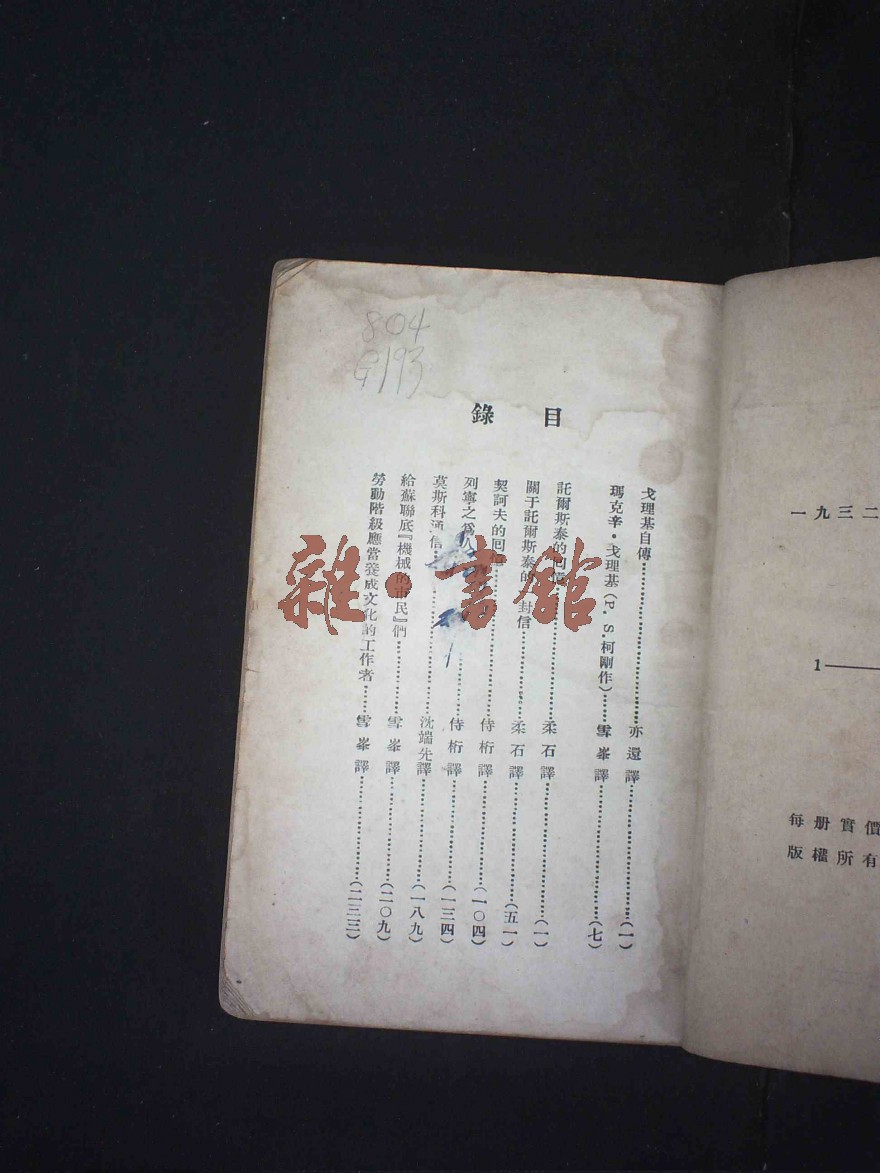 一九三二
1——
每册實價
版權所有
804
G193
目錄
戈理基自傳……亦還譯……(一)
瑪克辛·戈理基(P. S.柯剛作)……雪峯譯……(七)
託爾斯泰的回憶……柔石譯……(一)
關于託爾斯泰的封信……柔石譯……(五一)
契訶夫的回憶……侍桁譯……(一〇四)
列寧之為人……侍桁譯……(一三四)
莫斯科通信……沈端先譯……(一八九)
給蘇聯底『機械的市民』們……雪峯譯……(二〇九)
勞動階級應當養成文化的工作者……雪峯譯……(二三三)
雜·書館